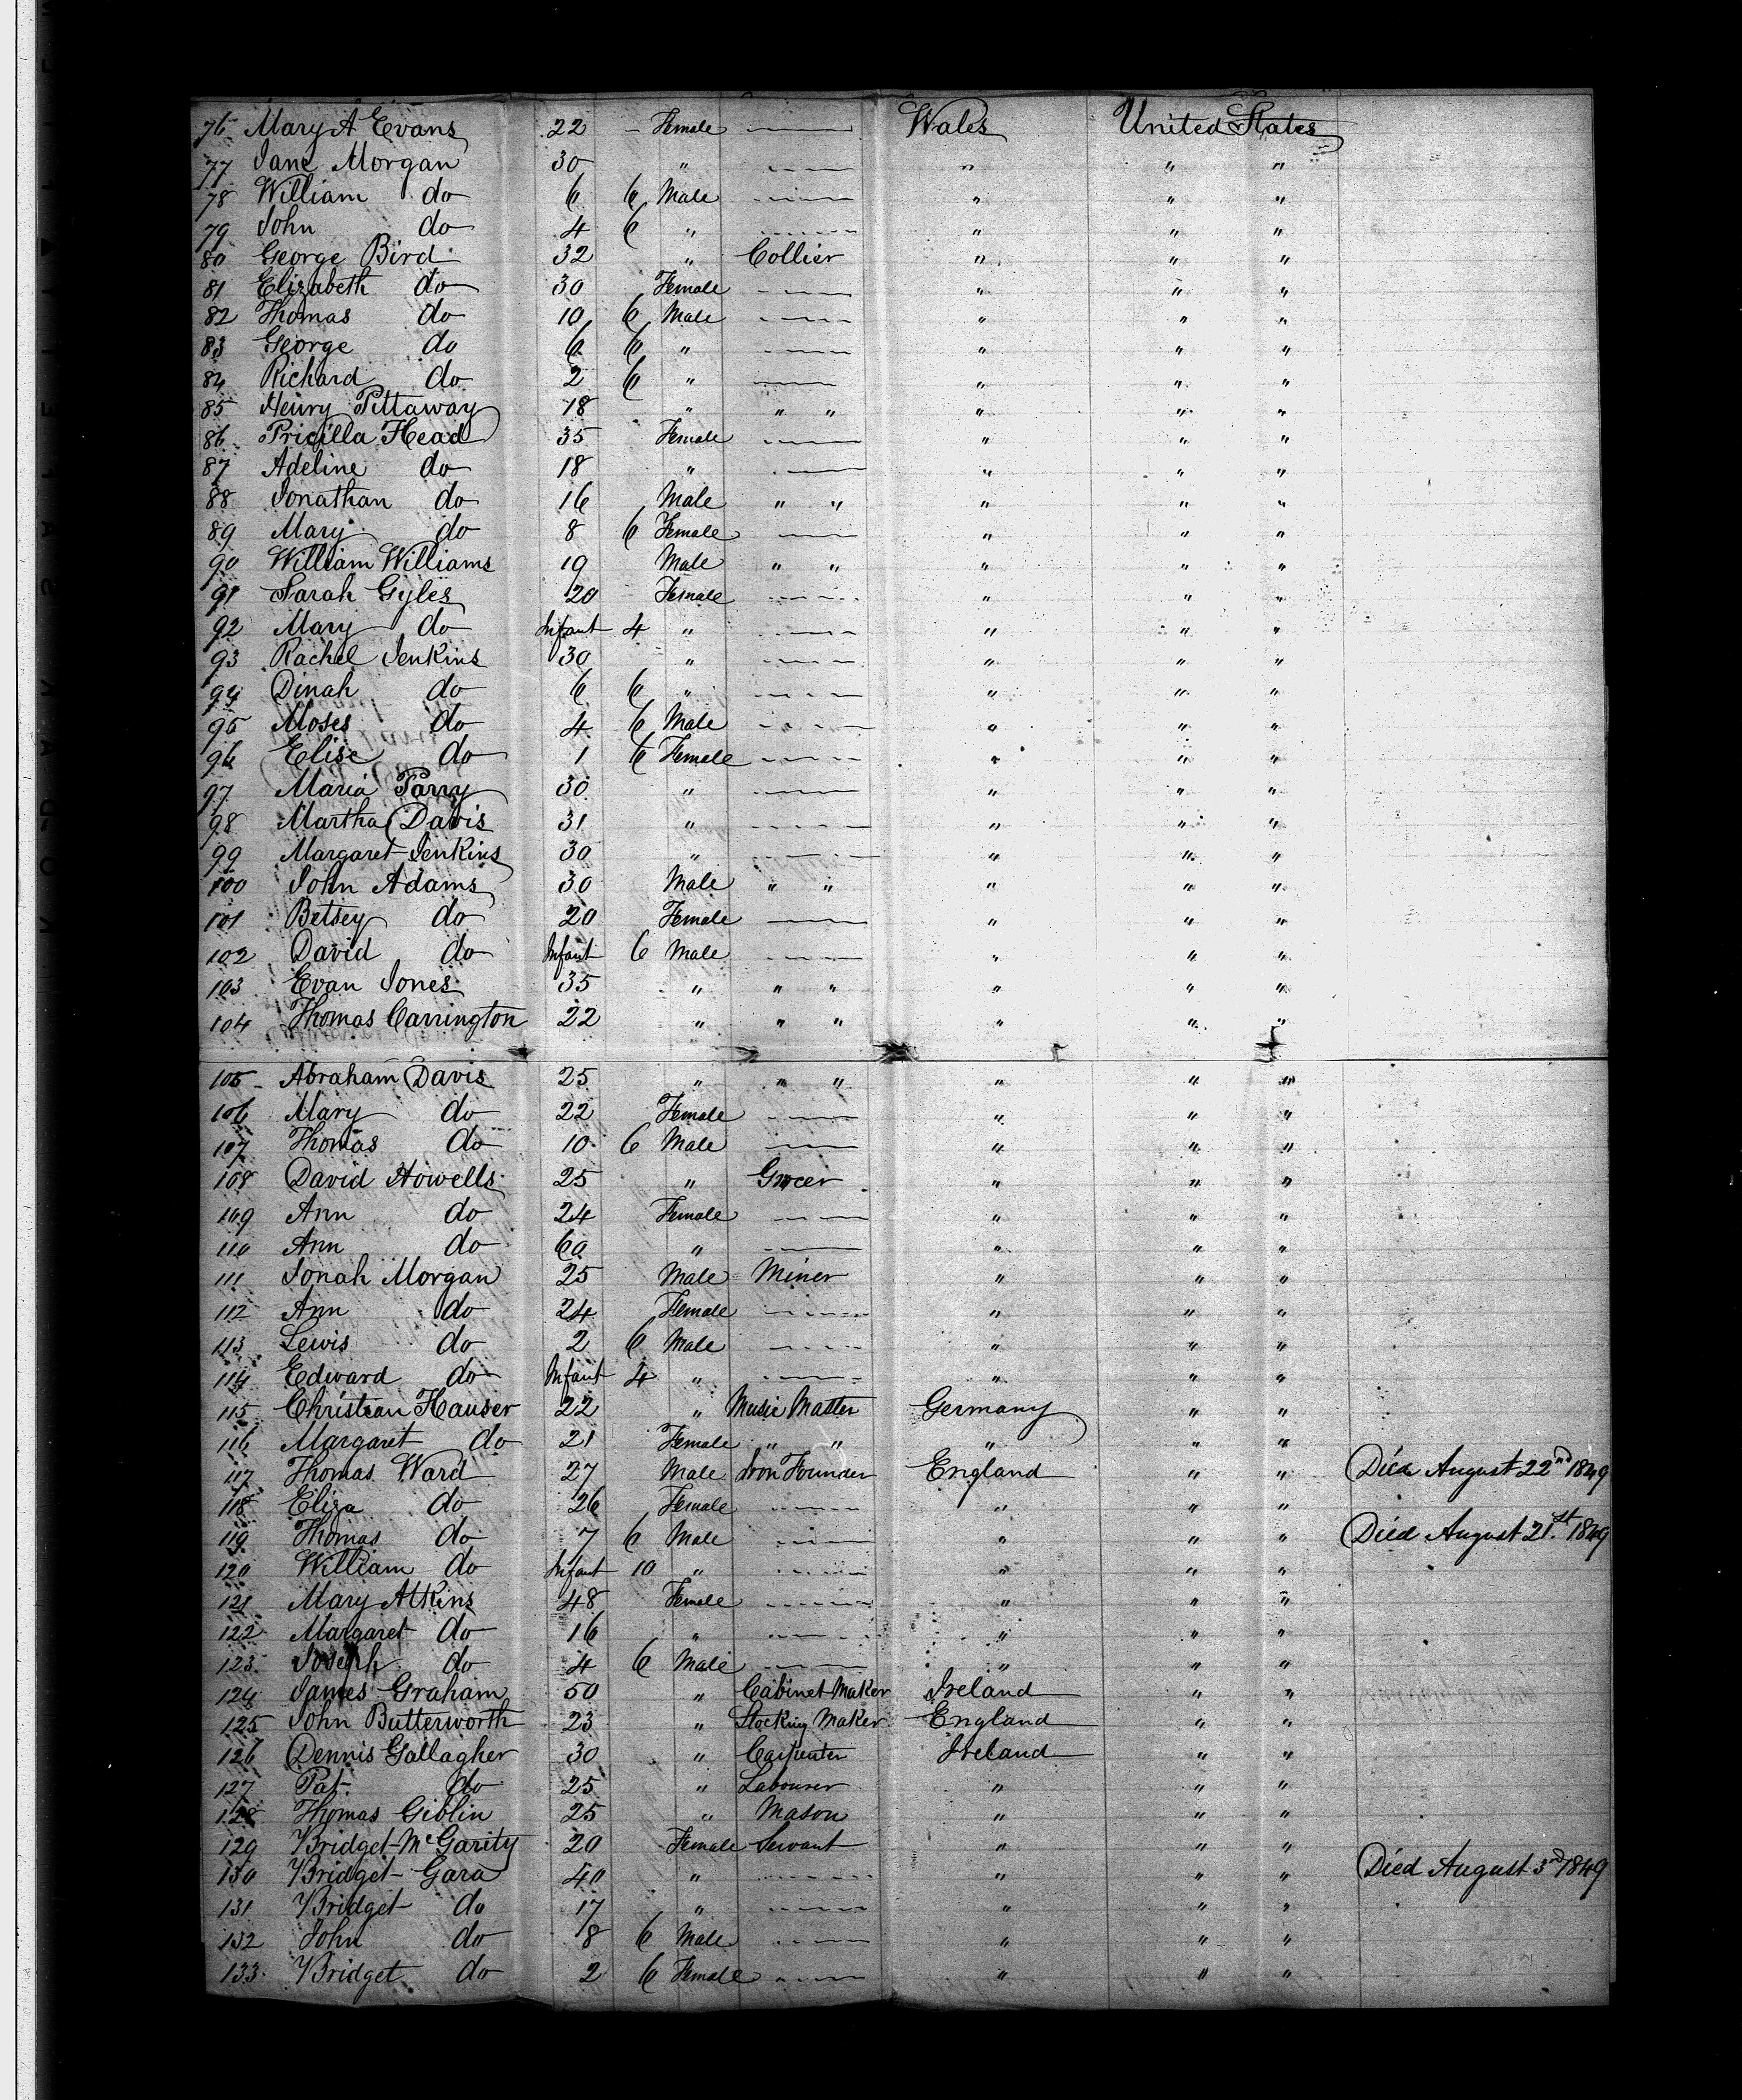 76 Mary A Evans 22 – Female Wales United States
77 Jane Morgan 30 " " " "
78 William do 6 6 Male " " "
79 John do 4 6 " " " "
80 George Bird 32 " Collier " " "
81 Elizabeth do 30 Female " " "
82 Thomas do 10 6 Male " " "
83 George do 6 6 " " " "
84 Richard do 2 6 " " " "
85 Henry Pittaway 18 " " " " " "
86 Pricilla Head 35 Female " " "
87 Adeline do 18 " " " "
88 Jonathan do 16 Male " " " " "
89 Mary do 8 6 Female " " "
90 William Williams 19 Male " " " " "
91 Sarah Gyles 20 Female " " "
92 Mary do Infant 4 " " " "
93 Rachel Jenkins 30 " " " "
94 Dinah do 6 6 " " " "
95 Moses do 4 6 Male " " "
96 Elise do 1 6 Female " " "
97 Maria Parry 30 " " " "
98 Martha Davis 31 " " " "
99 Margaret Jenkins 30 " " " "
100 John Adams 30 Male " " " " "
101 Betsey do 20 Female " " "
102 David do Infant 6 Male " " "
103 Evan Jones 35 " " " " " "
104 Thomas Carrington 22 " " " " " "
105 Abraham Davis 25 " " " " " "
106 Mary do 22 Female " " "
107 Thomas do 10 6 Male " " "
108 David Howells 25 " Grocer " " "
109 Ann do 24 Female " " "
110 Ann do 60 " " " "
111 Jonah Morgan 25 Male Miner " " "
112 Ann do 24 Female " " "
113 Lewis do 2 6 Male " " "
114 Edward do Infant 4 " " " "
115 Christian Hauser 22 " Music Master Germany " "
116 Margaret do 21 Female " " " " "
117 Thomas Ward 27 Male Iron Founder England " " Died August 22nd 1849
118 Eliza do 26 Female " " "
119 Thomas do 7 6 Male " " " Died August 21st 1849
120 William do Infant 10 " " " "
121 Mary Atkins 48 Female " " "
122 Margaret do 16 " " " "
123 Joseph do 4 6 Male " " "
124 James Graham 50 " Cabinet Maker Ireland " "
125 John Butterworth 23 " Stocking Maker England " "
126 Dennis Gallagher 30 " Carpenter Ireland " "
127 Pat do 25 " Labourer " " "
128 Thomas Giblin 25 " Mason " " "
129 Bridget McGarity 20 Female Servant " " "
130 Bridget Gara 40 " " " " Died August 3rd 1849
131 Bridget do 17 " " " "
132 John do 8 6 Male " " "
133 Bridget do 2 6 Female " " "